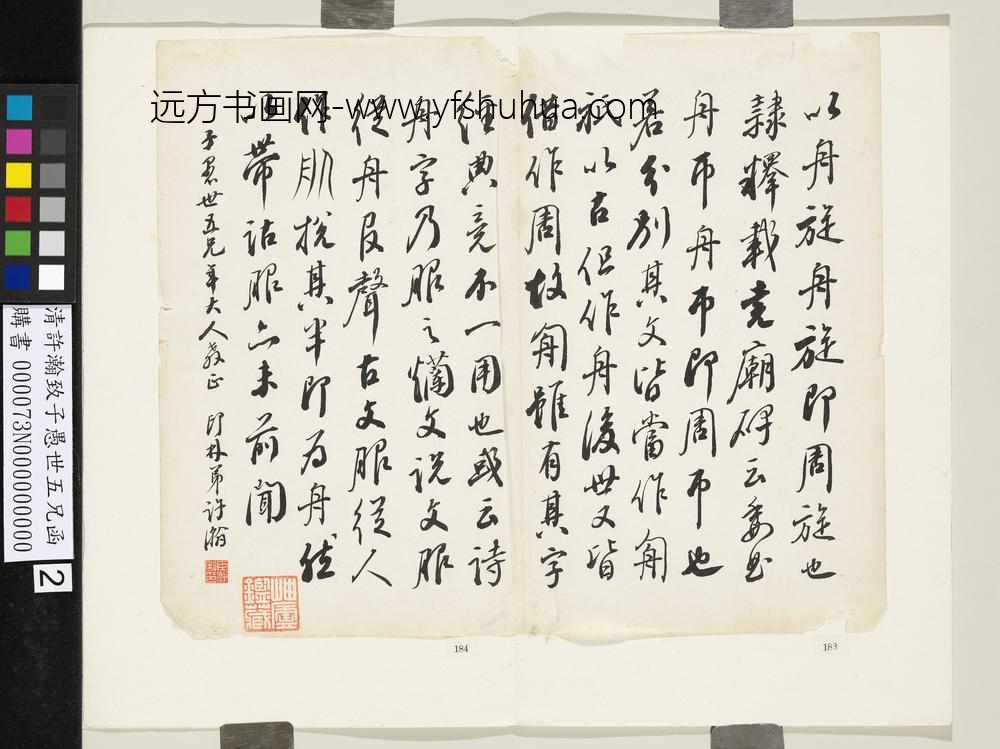 远方书画网-www.yfshuhua.com
以舟旋舟旋即周旋也
隸釋載堯廟碑云委曲
舟帀舟帀即周帀也
若分別其文皆當作匊
以古但作舟後世又皆
借作周故匊雖有其字
經典竟不一用也或云詩
舟字乃服之爛文說文服
從舟𠬝聲古文服從人
作肌挩其半即為舟然
帶詁服亦未前聞
子愚世五兄年大人教正 印林弟許瀚
岫雲
鑑藏
184
183
清許瀚致子愚世五兄函
購書 000073N000000000
2